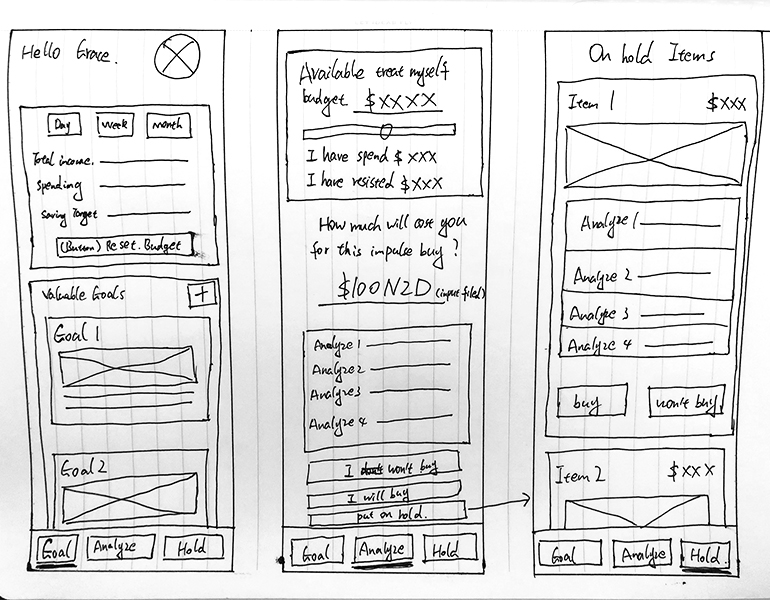 Hello Grace.
Day Week Month
Total income.
Spending
Saving Target
(Button) Reset. Budget
Valuable Goals +
Goal 1
Goal 2
Goal Analyze Hold
Available treat myself
budget $XXXX
I have spend $XXX
I have resisted $XXX
How much will cost you
for this impulse buy?
$100NZD (input filed)
Analyze 1
Analyze 2
Analyze 3
Analyze 4
I won't buy
I will buy
put on hold.
Goal Analyze Hold
On hold Items
Item 1 $XXX
Analyze 1
Analyze 2
Analyze 3
Analyze 4
buy won't buy
Item 2 $XXX
Goal Analyze Hold.